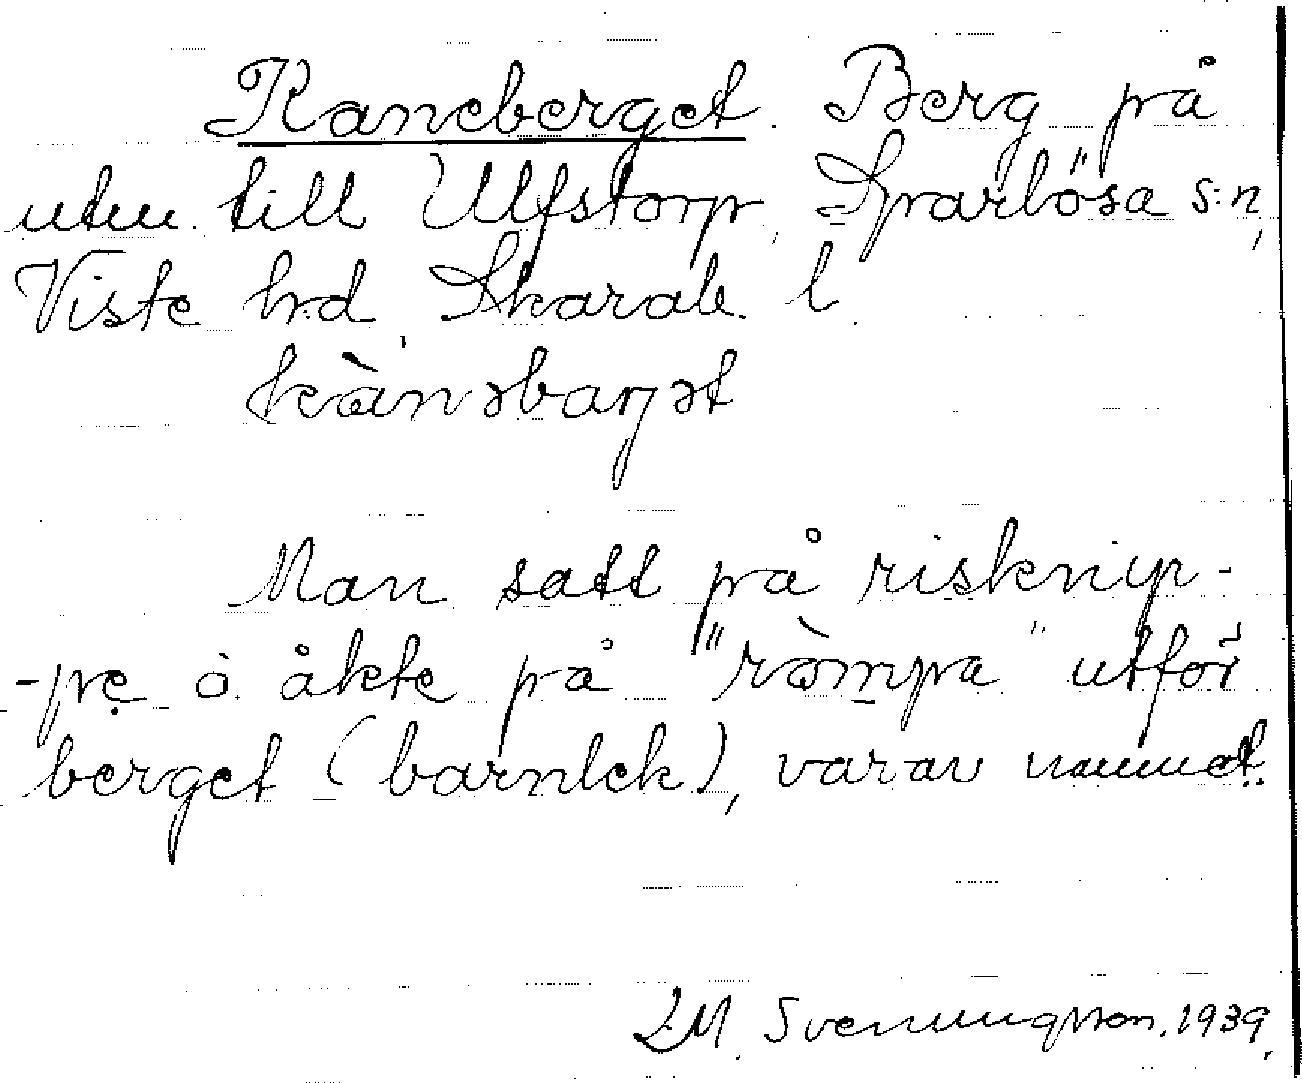 Kaneberget. Berg på
utm. till Ulfstorp, Sparlösa s:n,
Viste hd, Skarab. l.
kànəbarjət
Man satt på risknip-
-pe ò åkte på "ròmpa" utför
berget (barnlek), varav namnet.
Svenungsson. 1939.